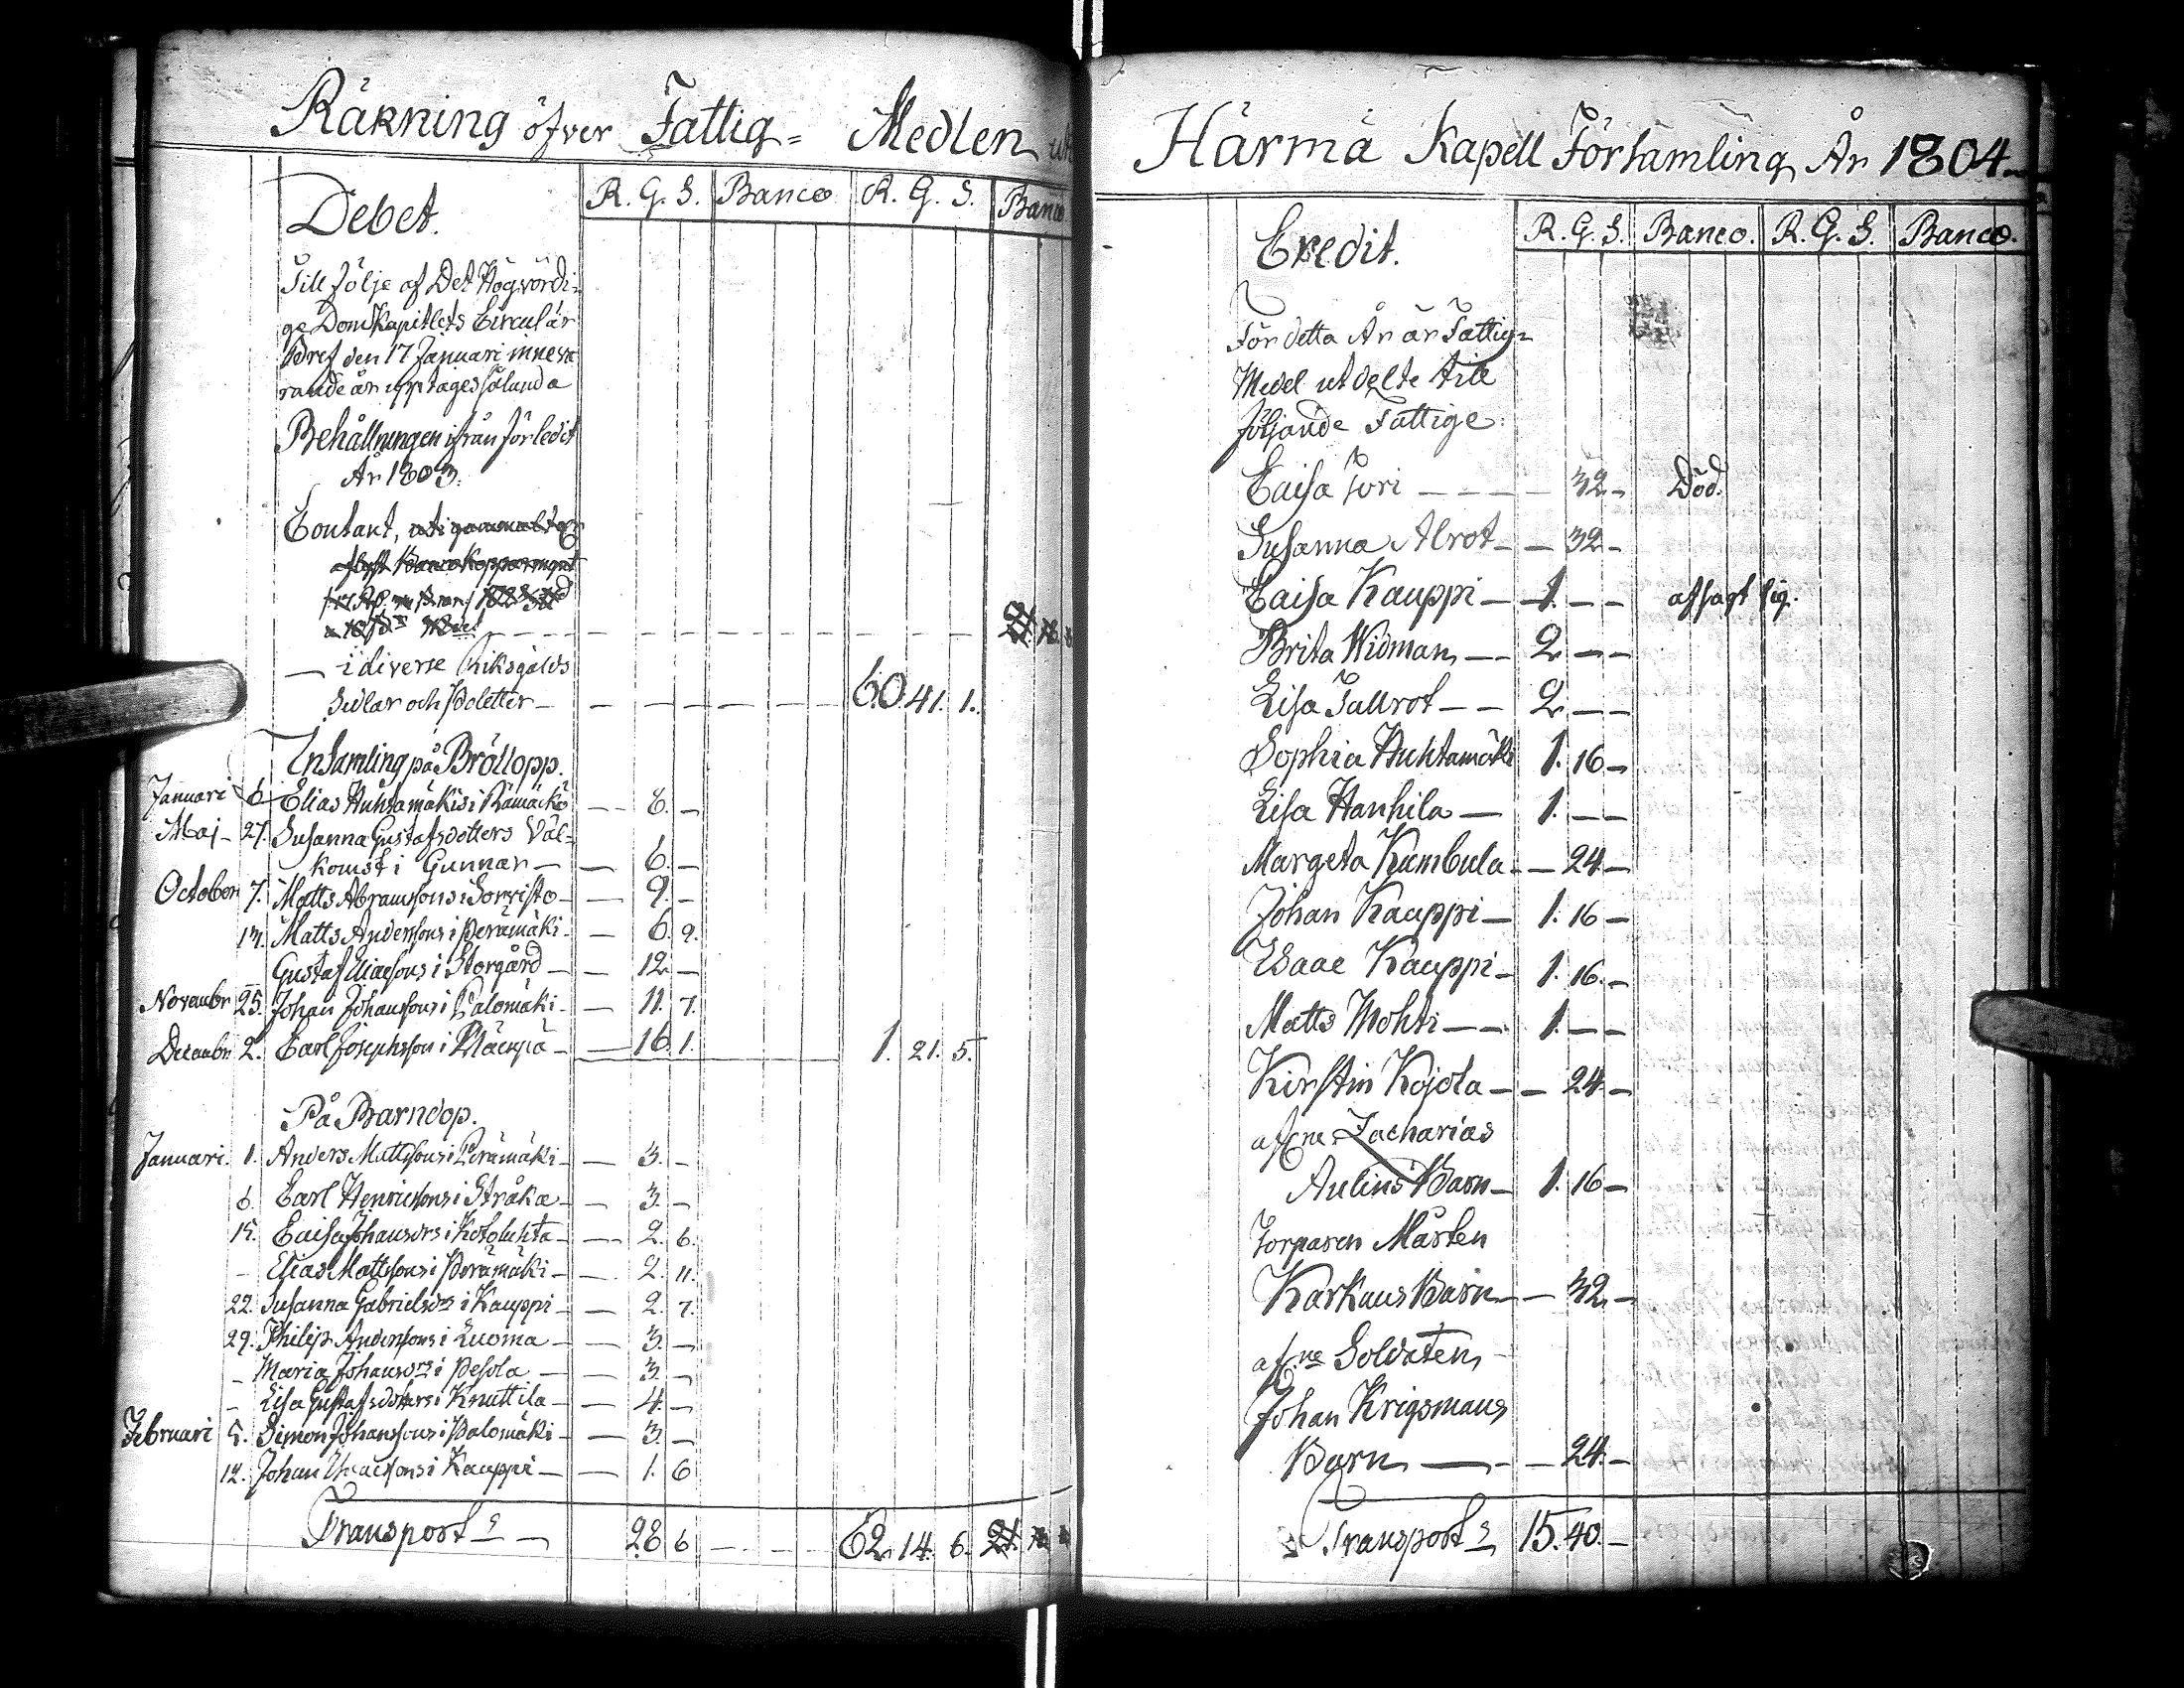 Räkning öfver Fattig= Medlen
Debet.
R. G. S. Banco R. G. S. Banco
Till följe af Det Högvördi=
ge DomKapitlets Circulär
Bref den 17 Januari inneva
rande år upptages sålunda
Behållningen ifrån förledit
År 1803.
Contant,
— i diverse Riksgälds
Sedlar och Poletter — 60. 41. 1.
Insamling på Bröllopp.
Januari 6 Elias Huhtamäkis i — 8. —
Maj — 27. Susanna Gustafsdotters Väl=
komst i Gunnar — — 6. —
October 7. Matts Abramssons i Sorvisto — — 9. —
13. Matts Anderssons i Perämäki — — 6. 9.
Gustaf Eliaesons i Storgård — — 12 —
Novembr 25. Johan Johanssons i Palomäki — — 11. 7.
Decembr 2. Carl Josephsson i — 16. 1. 1. 21. 5.
På Barndop.
Januari. 1. Anders Mattssons i Perämäki — — 3. —
6. Carl Henricssons i Stråka — — 3. —
15. Caisa Johansdrs i Kotoluhta — — 2. 6.
— Elias Mattssons i Perämäki — — 2. 11.
22. Susanna Gabrielsdrs i Kauppi — — 2. 7.
29. Philip Anderssons i Luoma — — 3. —
— Maria Johansdrs i Pesola — — 3. —
— Lisa Gustafsdotters i Knuttila — — 4. —
Februari 5. Simon Johanssons i Palomäki — — 3. —
12. Johan Isaacssons i Kauppi — — 1. 6
Transport — 28 6 — 62. 14. 6. 21.
Härmä Kapell Församling År 1804.
Credit.
R. G. S. Banco. R. G. S. Banco.
För detta År är Fattig=
Medel utdelte till
följande Fattige:
Caisa Jori — — — — 32 — Död.
Susanna Alrot — — 32 —
Caisa Kauppi — 1. — — afsagt sig.
Brita Widman — — 2 — —
Lisa Tallrot — — 2 — —
Sophia Huhtamäki 1. 16 —
Lisa Hanhila — 1. — —
Margeta Kumbula — — 24 —
Johan Kauppi — 1. 16 —
Isaac Kauppi — 1. 16. —
Matts Mohsi — — 1. — —
Kirstin Kojola — — 24 —
afl. ne Zacharias
Aulins Barn — 1. 16 —
Torparen Mårten
Karkaus Barn — — 32 —
afl. ne Soldaten
Johan Krigsmans
Barn — — — 24. —
Transport 15. 40. —